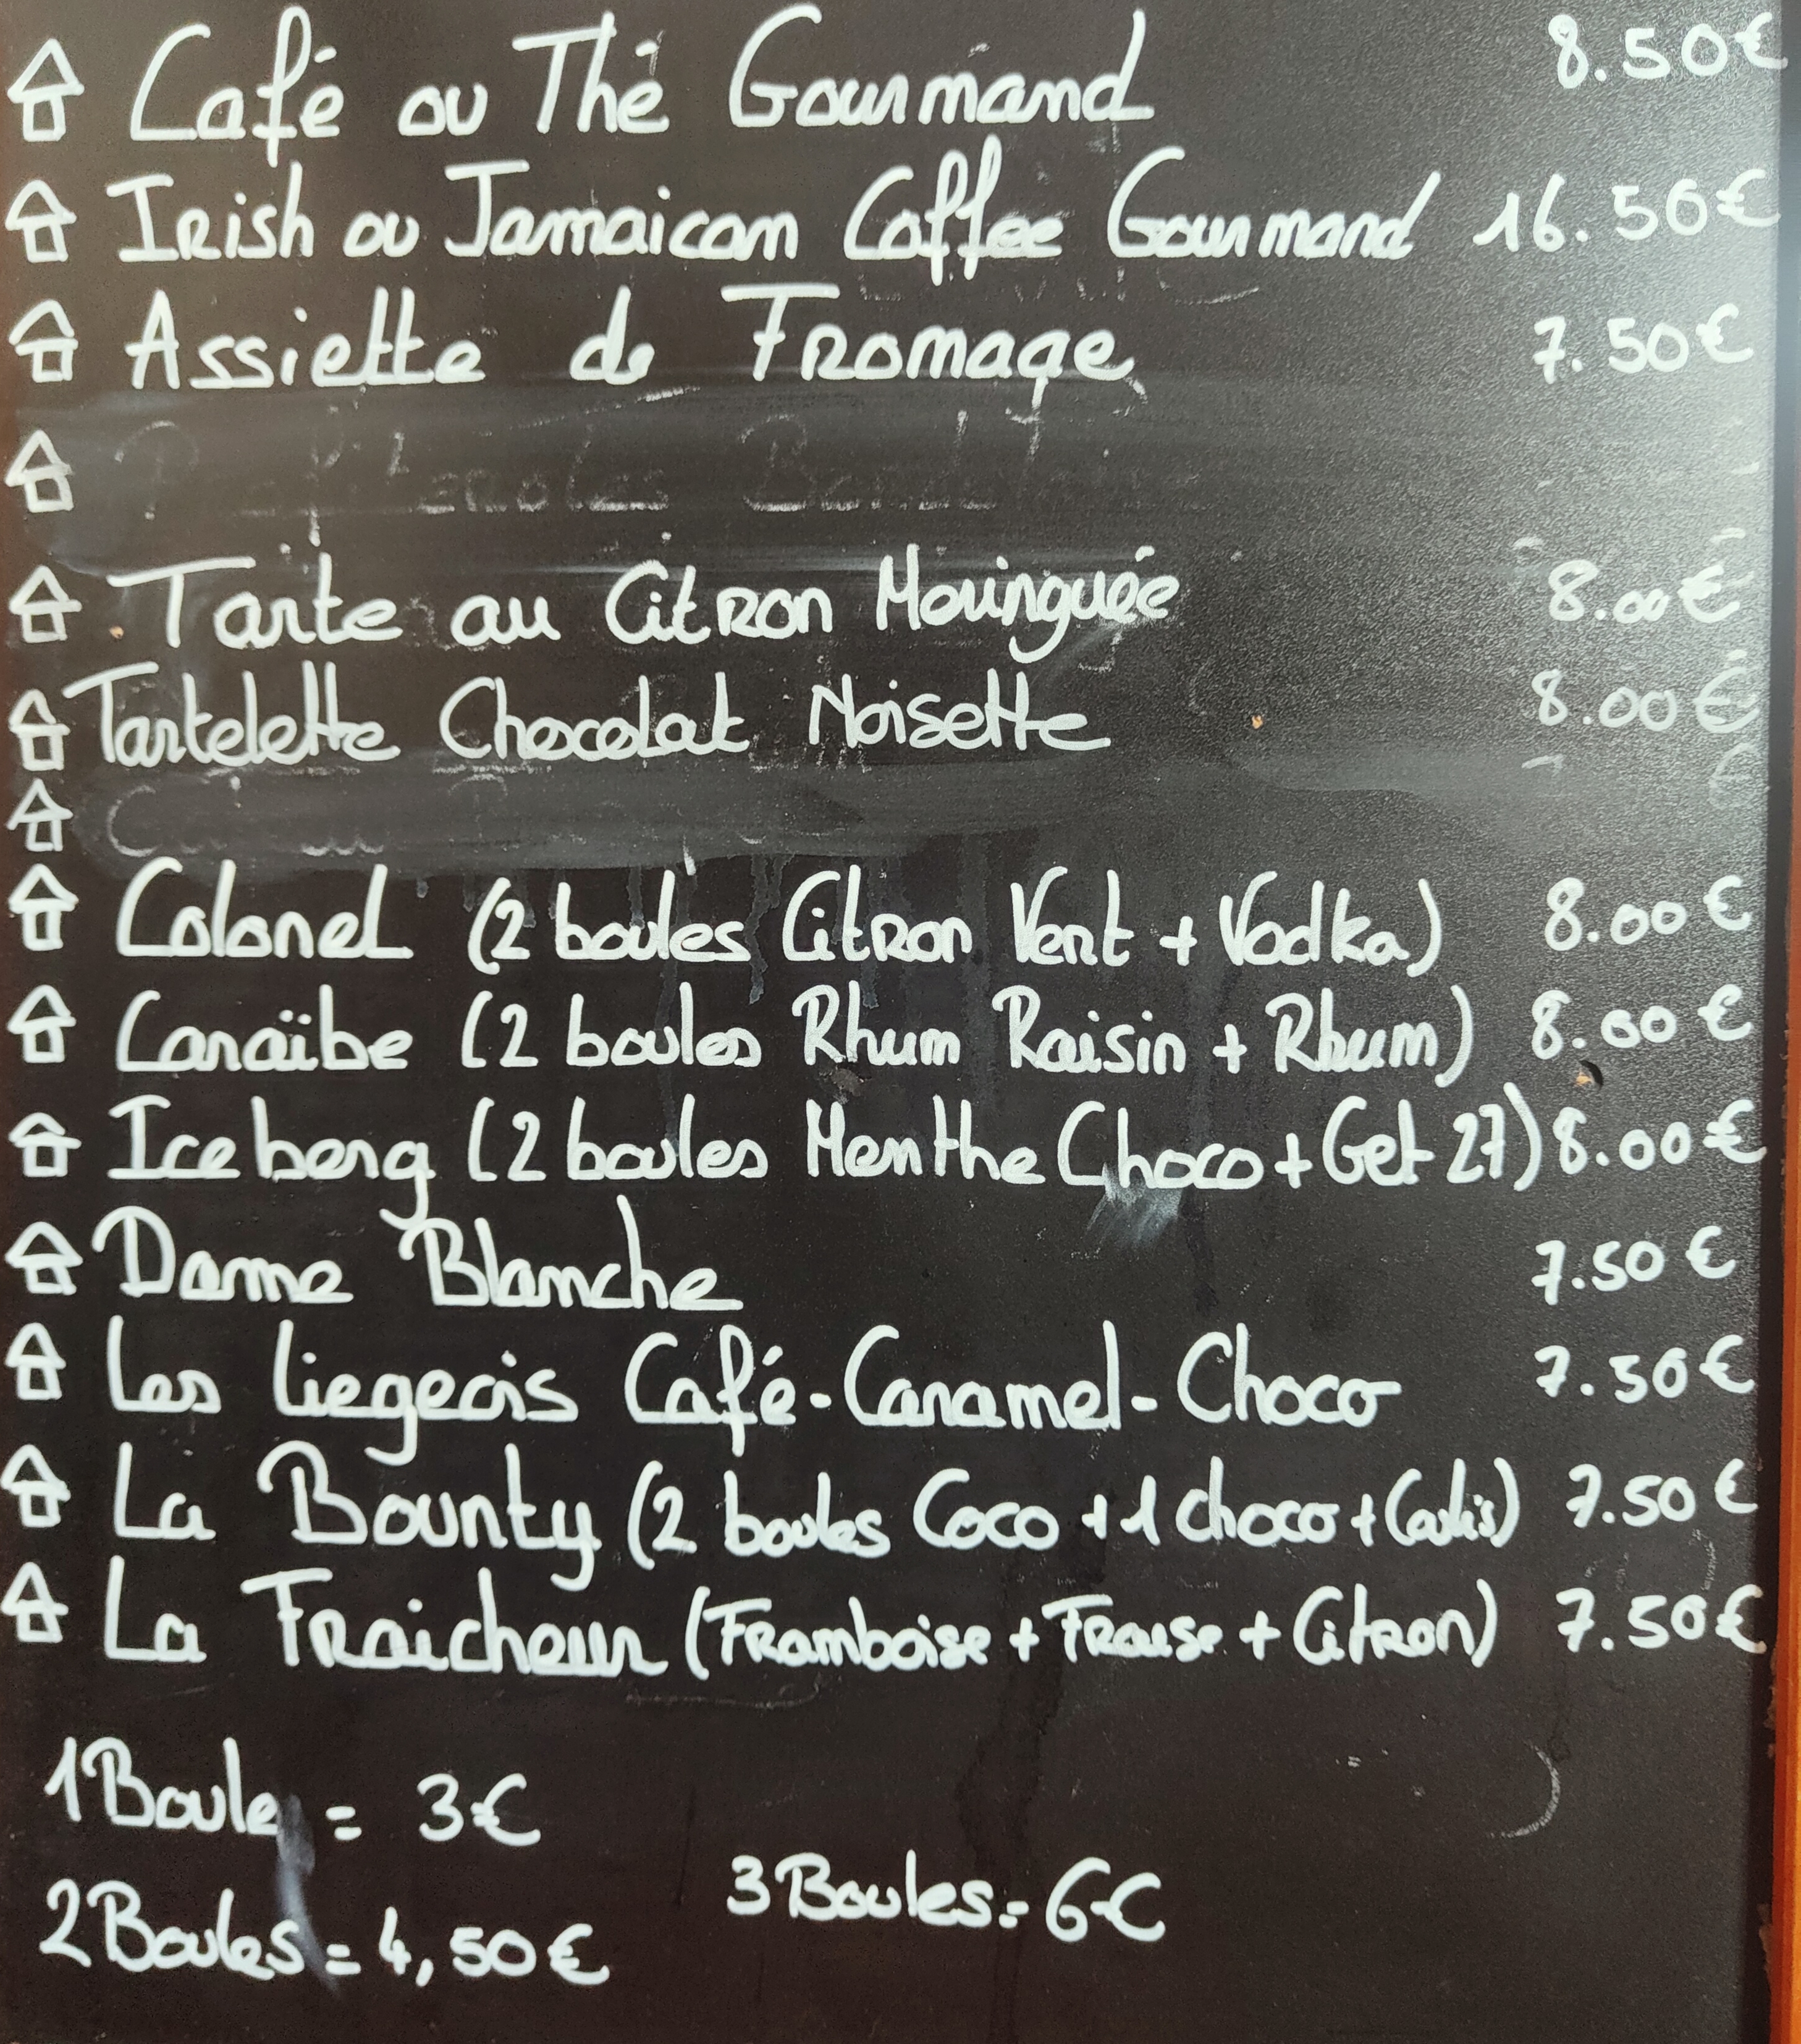 Café ou Thé Gourmand 8.50€
Irish ou Jamaican Coffee Gourmand 16.50€
Assiette de Fromage 7.50€
Tarte au Citron Meringuée 8.00€
Tartelette Chocolat Noisette 8.00€
Colonel (2 boules Citron Vert + Vodka) 8.00€
Caraïbe (2 boules Rhum Raisin + Rhum) 8.00€
Iceberg (2 boules Menthe Choco + Get 27) 8.00€
Dame Blanche 7.50€
Les liegeois Café-Caramel-Choco 7.50€
La Bounty (2 boules Coco + 1 choco + Coulis) 7.50€
La Fraicheur (Framboise + Fraise + Citron) 7.50€
1 Boule = 3€
3 Boules = 6€
2 Boules = 4,50€